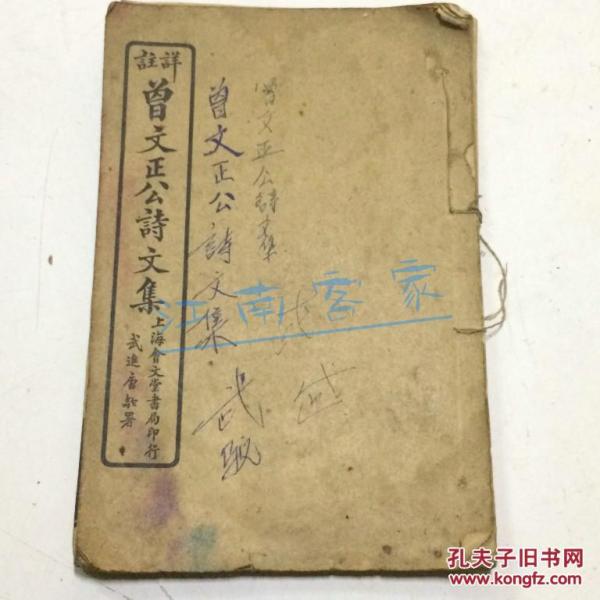 詳註
曾文正公詩文集
上海會文堂書局印行
武進唐駝署
曾文正公詩文集
曾文正公詩文集
江南客家
孔夫子旧书网
www.kongfz.com